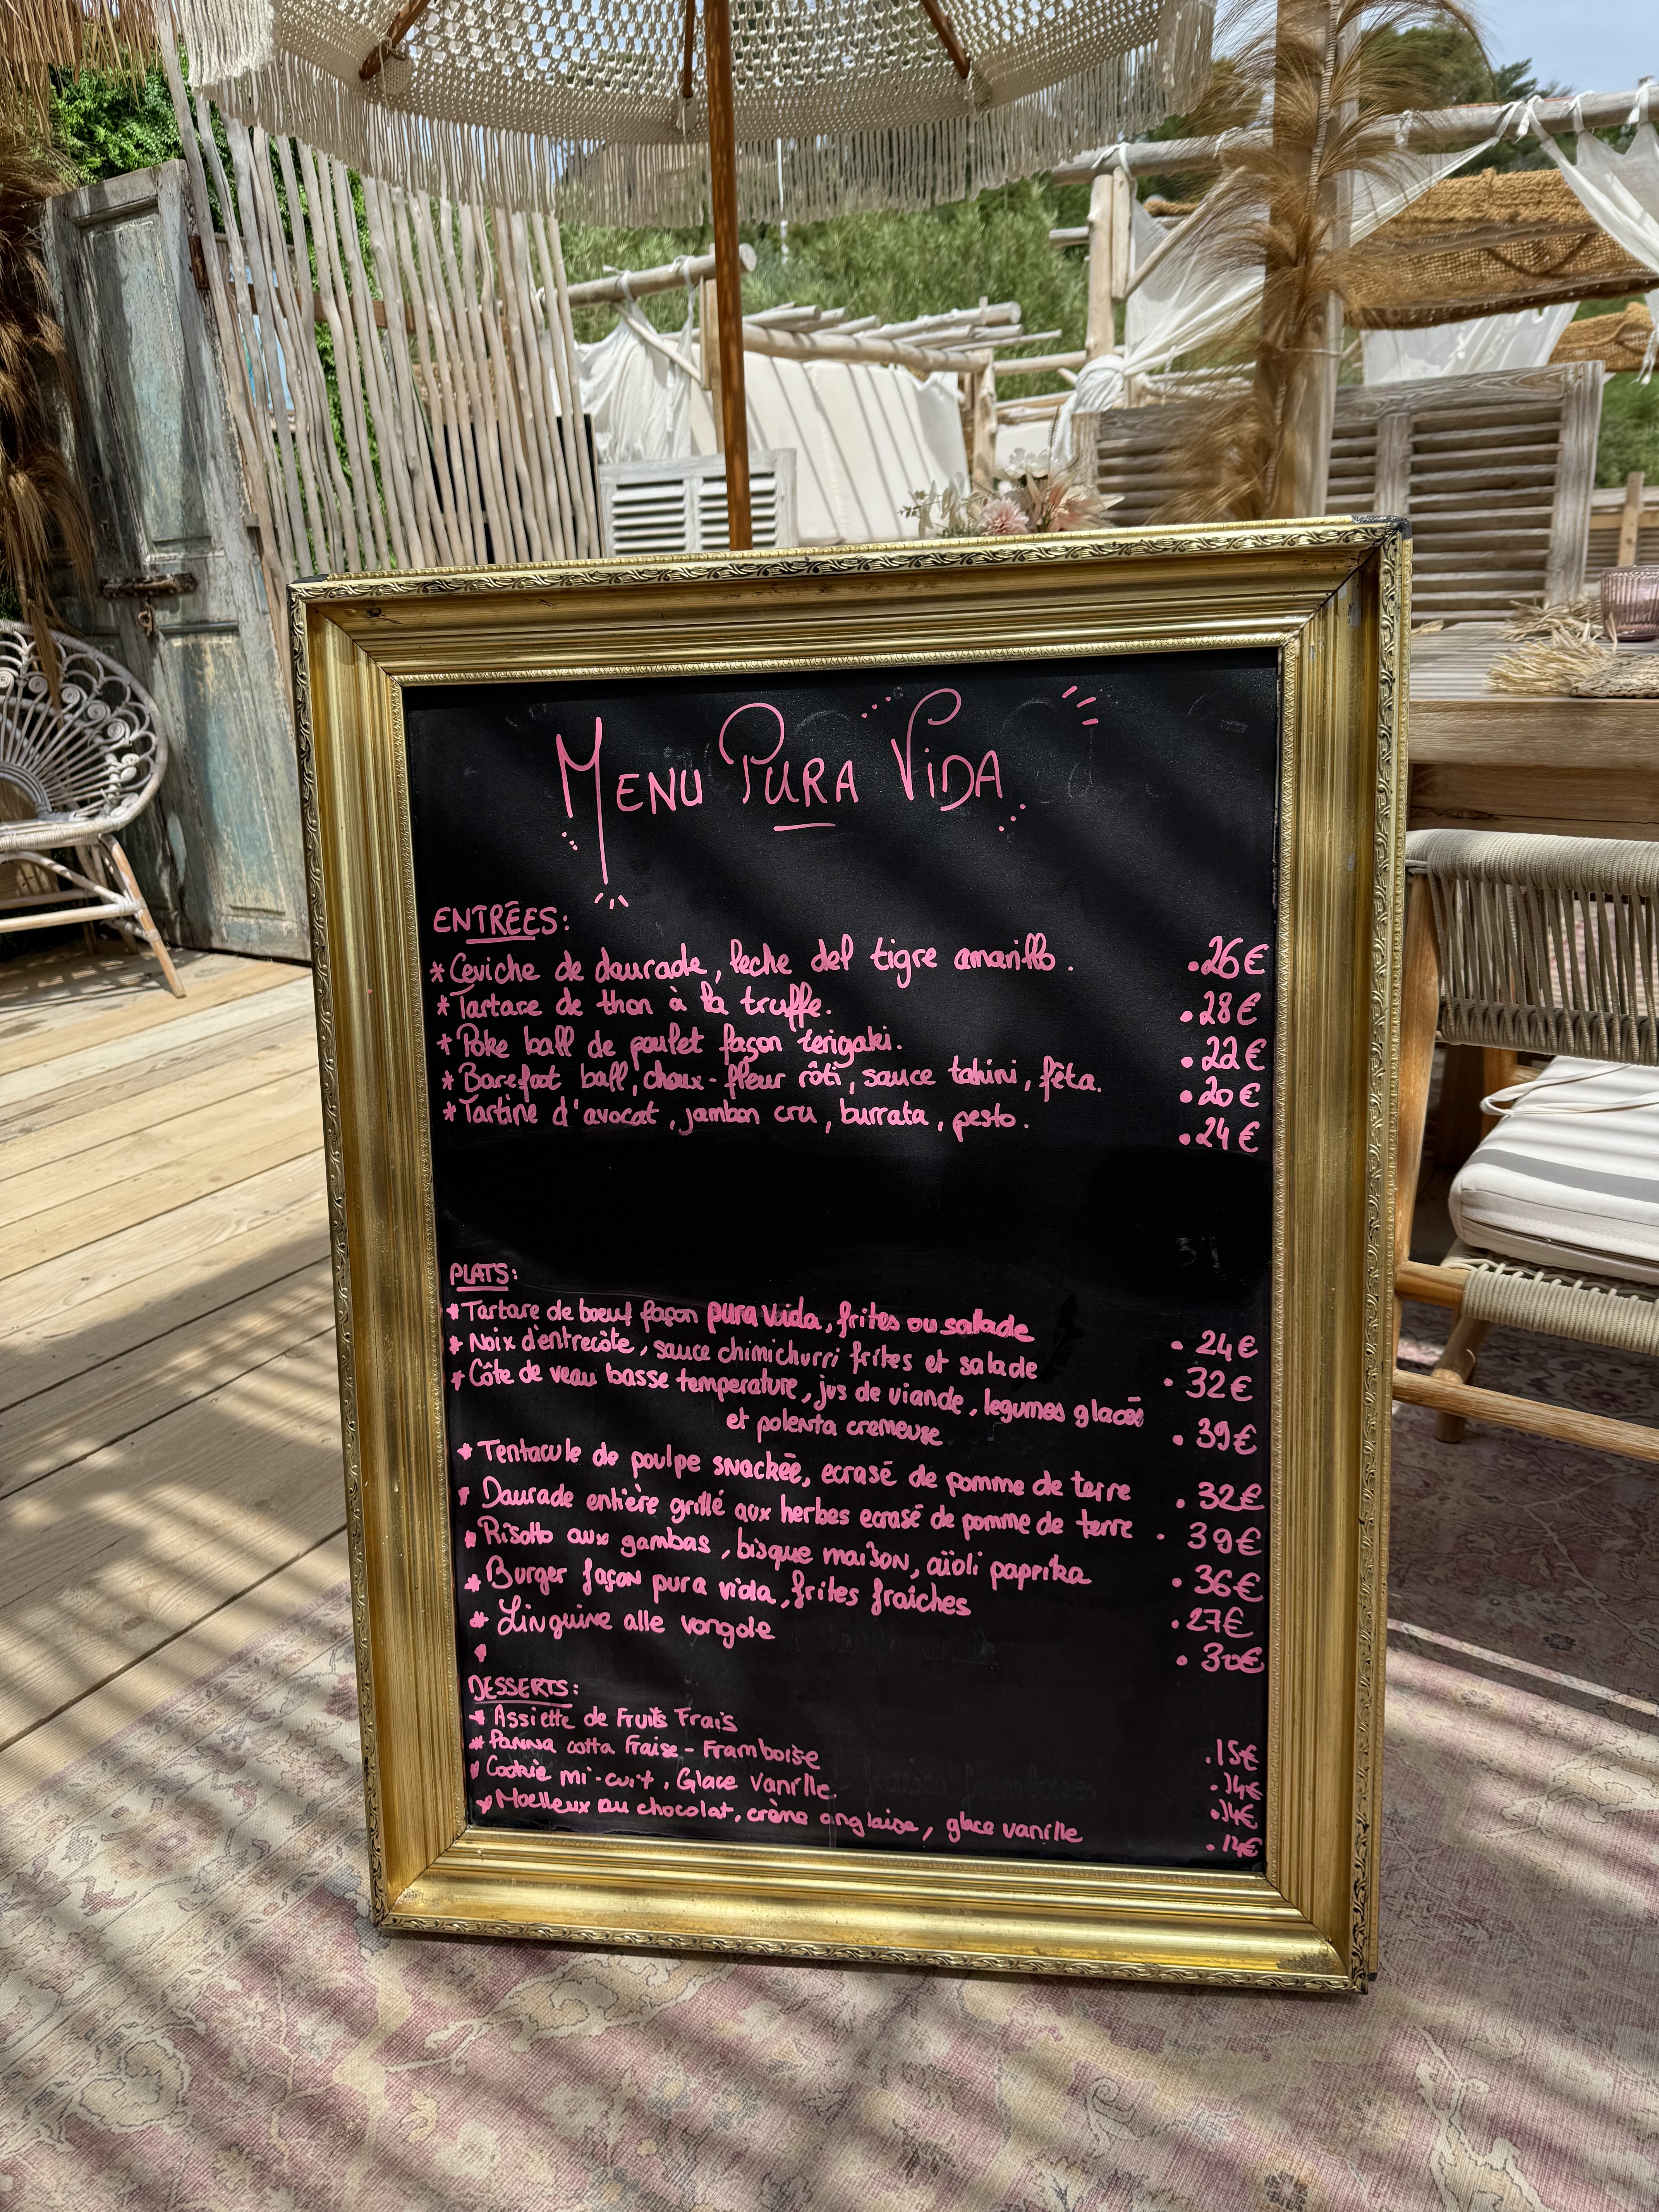 MENU PURA VIDA
ENTRÉES:
* Ceviche de daurade, leche del tigre amarillo. .26€
* Tartare de thon à la truffe. .28€
* Poke ball de poulet façon terigaki. .22€
* Barefoot ball, choux-fleur rôti, sauce tahini, fêta. .20€
* Tartine d'avocat, jambon cru, burrata, pesto. .24€
PLATS:
* Tartare de boeuf façon pura vida, frites ou salade . 24€
* Noix d'entrecôte, sauce chimichurri frites et salade . 32€
* Côte de veau basse temperature, jus de viande, legumes glacés
et polenta cremeuse . 39€
* Tentacule de poulpe snackée, ecrasé de pomme de terre . 32€
* Daurade entière grillé aux herbes ecrasé de pomme de terre . 39€
* Risotto aux gambas, bisque maison, aïoli paprika . 36€
* Burger façon pura vida, frites fraîches . 27€
* Linguine alle vongole . 30€
DESSERTS:
* Assiette de Fruits Frais .15€
* Panna cotta Fraise - Framboise .14€
* Cookie mi-cuit, Glace Vanille .14€
* Moelleux au chocolat, crème anglaise, glace vanille .14€